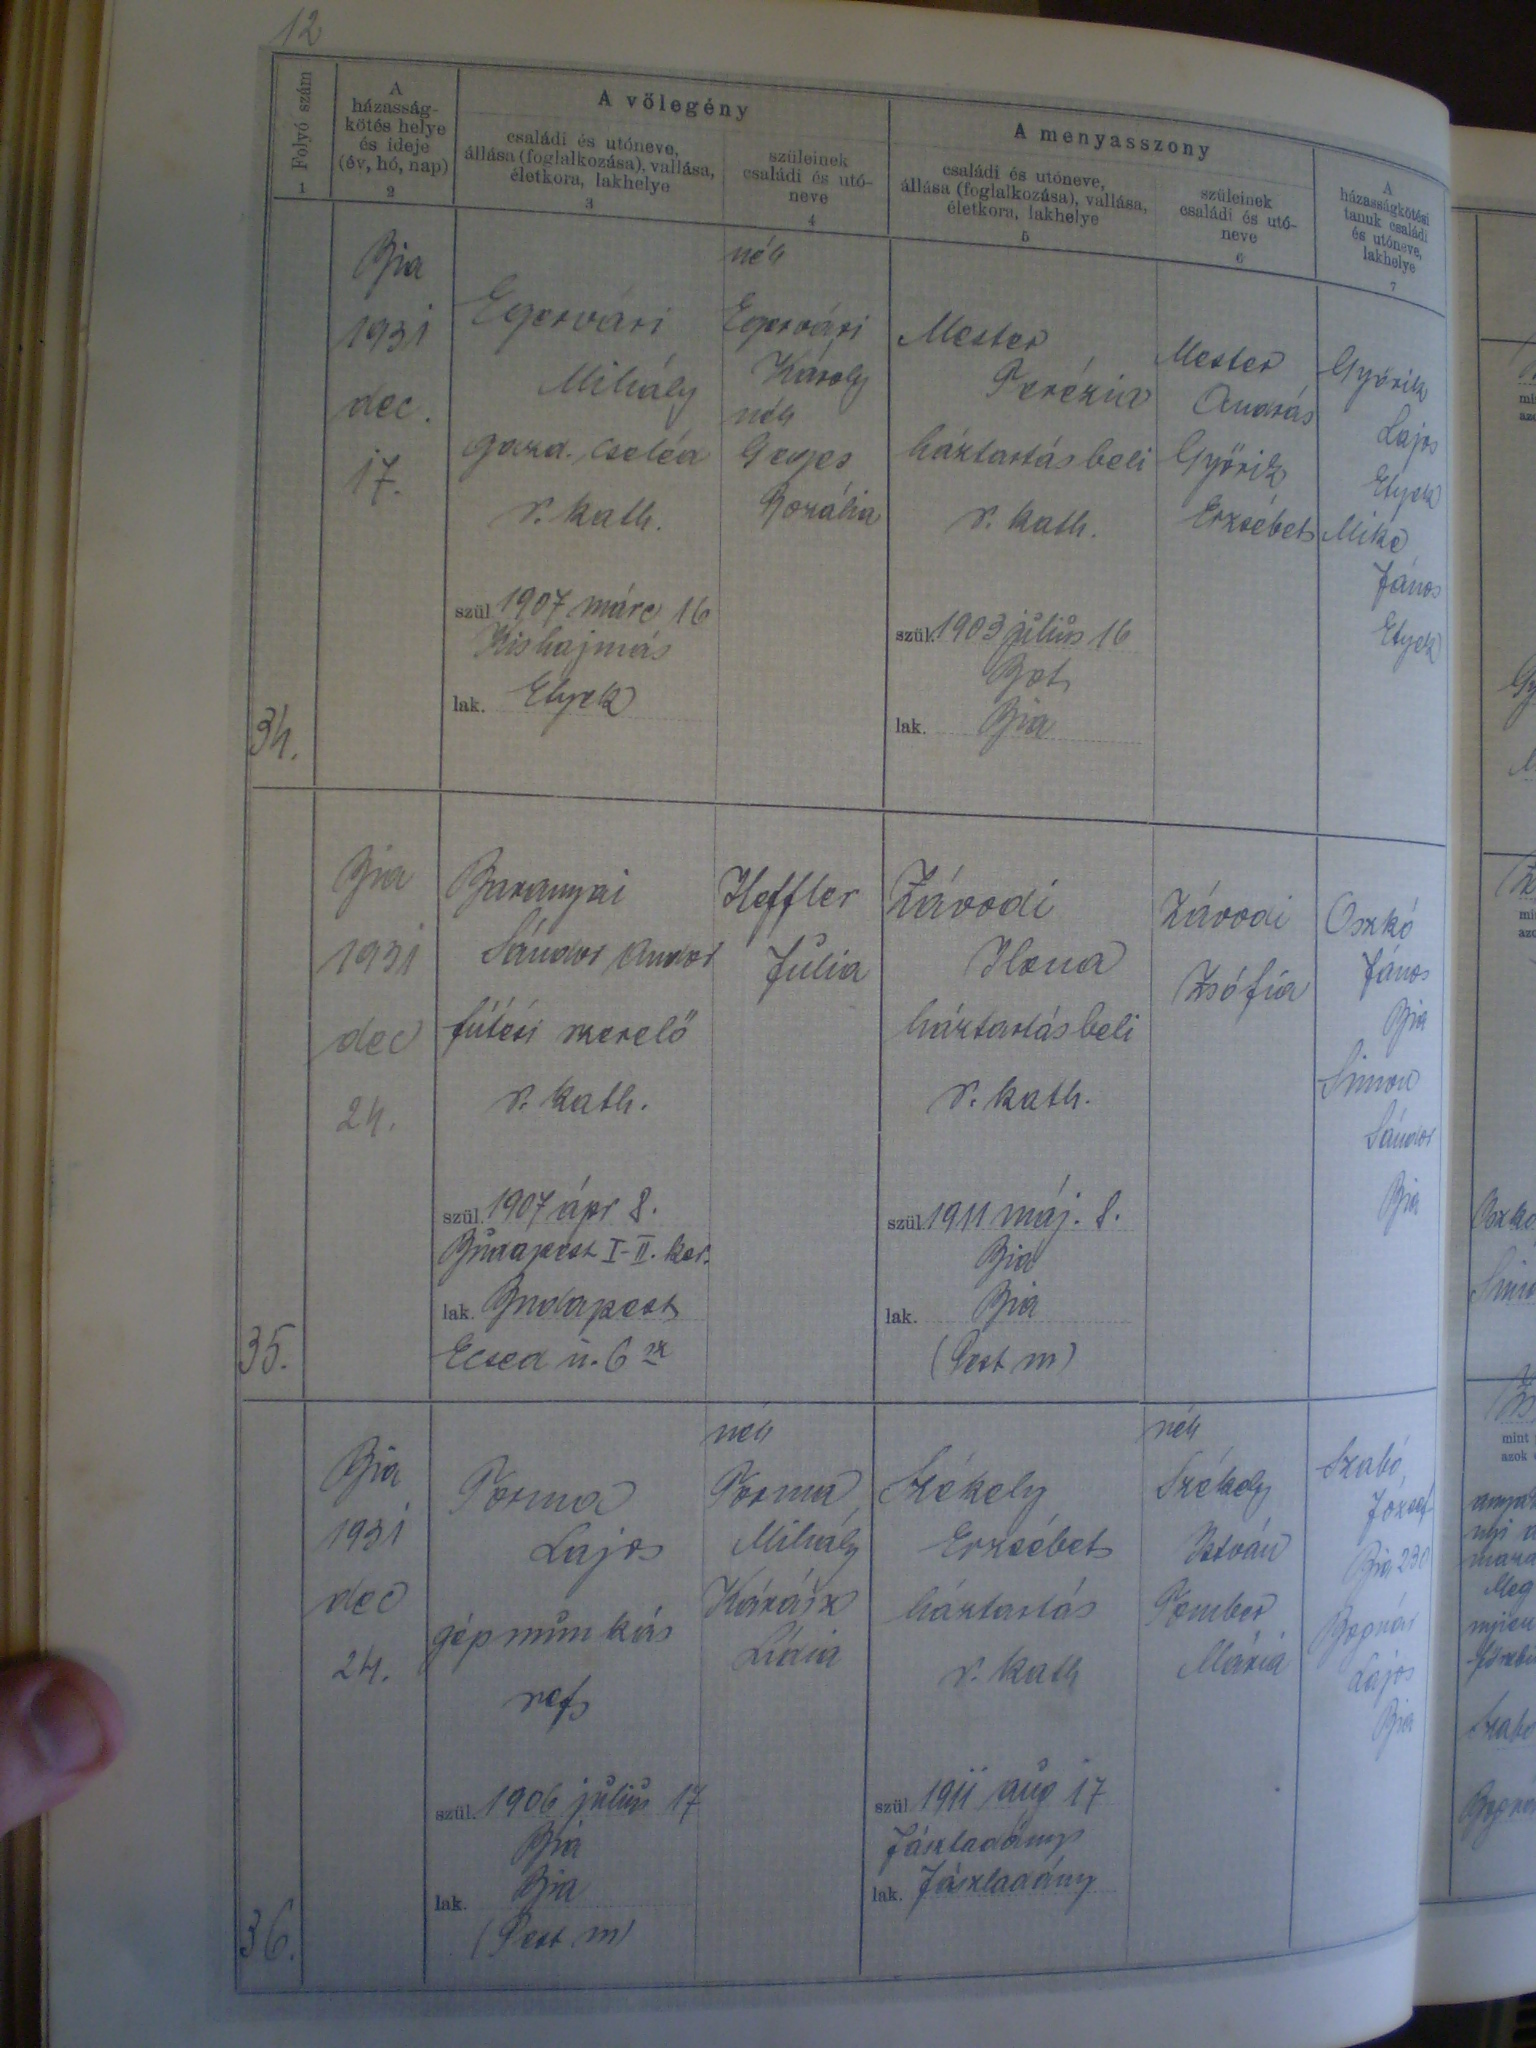 12
Folyó szám
1
A
házasság-
kötés helye
és ideje
(év, hó, nap)
2
A vőlegény
családi és utóneve,
állása (foglalkozása), vallása,
életkora, lakhelye
3
szüleinek
családi és utó-
neve
4
A menyasszony
családi és utóneve,
állása (foglalkozása), vallása,
életkora, lakhelye
5
szüleinek
családi és utó-
neve
6
A
házasságkötési
tanuk családi
és utóneve,
lakhelye
7
34.
Bia
1931
dec.
17.
Egervári
Mihály
gazd. cseléd
r. kath.
szül. 1907 márc 16
Kishajmás
lak. Etyek
néh
Egervári
Károly
néh
Rozália
Mester
Terézia
háztartásbeli
r. kath.
szül. 1903 július 16
lak. Bia
Mester
András
Győrik
Erzsébet
Győrik
Lajos
Etyek
Mike
János
Etyek
35.
Bia
1931
dec
24.
Baranyai
Sándor Andor
fűtési szerelő
r. kath.
szül. 1907 ápr 8.
Budapest I-II. ker.
lak. Budapest
Ecsed u. 6
Heffler
Julia
Závodi
Ilona
háztartásbeli
r. kath.
szül. 1911 máj. 8.
Bia
lak. Bia
(Pest m)
Závodi
Zsófia
Oszkó
János
Bia
Simon
Sándor
Bia
36.
Bia
1931
dec
24.
Torma
Lajos
gépmunkás
ref
szül. 1906 július 17
Bia
lak. Bia
(Pest m)
néh
Torma
Mihály
Kárász
Lidia
Székely
Erzsébet
háztartás
r. kath
szül 1911 aug 17
Jászladány
lak. Jászladány
néh
Székely
István
Tember
Mária
Szabó
József
Bia 230
Bognár
Lajos
Bia
mint
azok
Meg